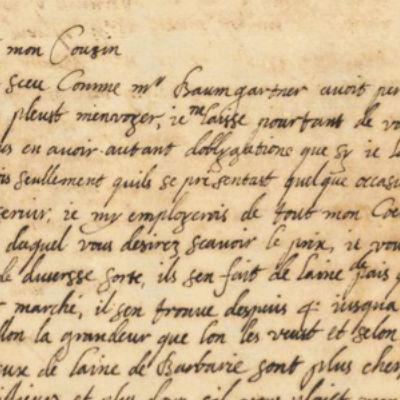 mon Cousin
sceu Comme mr Baumgartner avoit per
pleust m'envoyer, ie me laisse pourtant de vo
us en avoir autant doblygations que sy ie l
ois seullement quils se presentast quelque occasi
servir, ie my employerois de tout mon Coe
duquel vous desirez scavoir le prix, ie vou
de diversse sorte, ils sen fait de laine de pais
marché, il sen trouve despuis 4. iusqua
llon la grandeur que lon les veut et selon
eux de laine de Barbarie sont plus cher
et plus